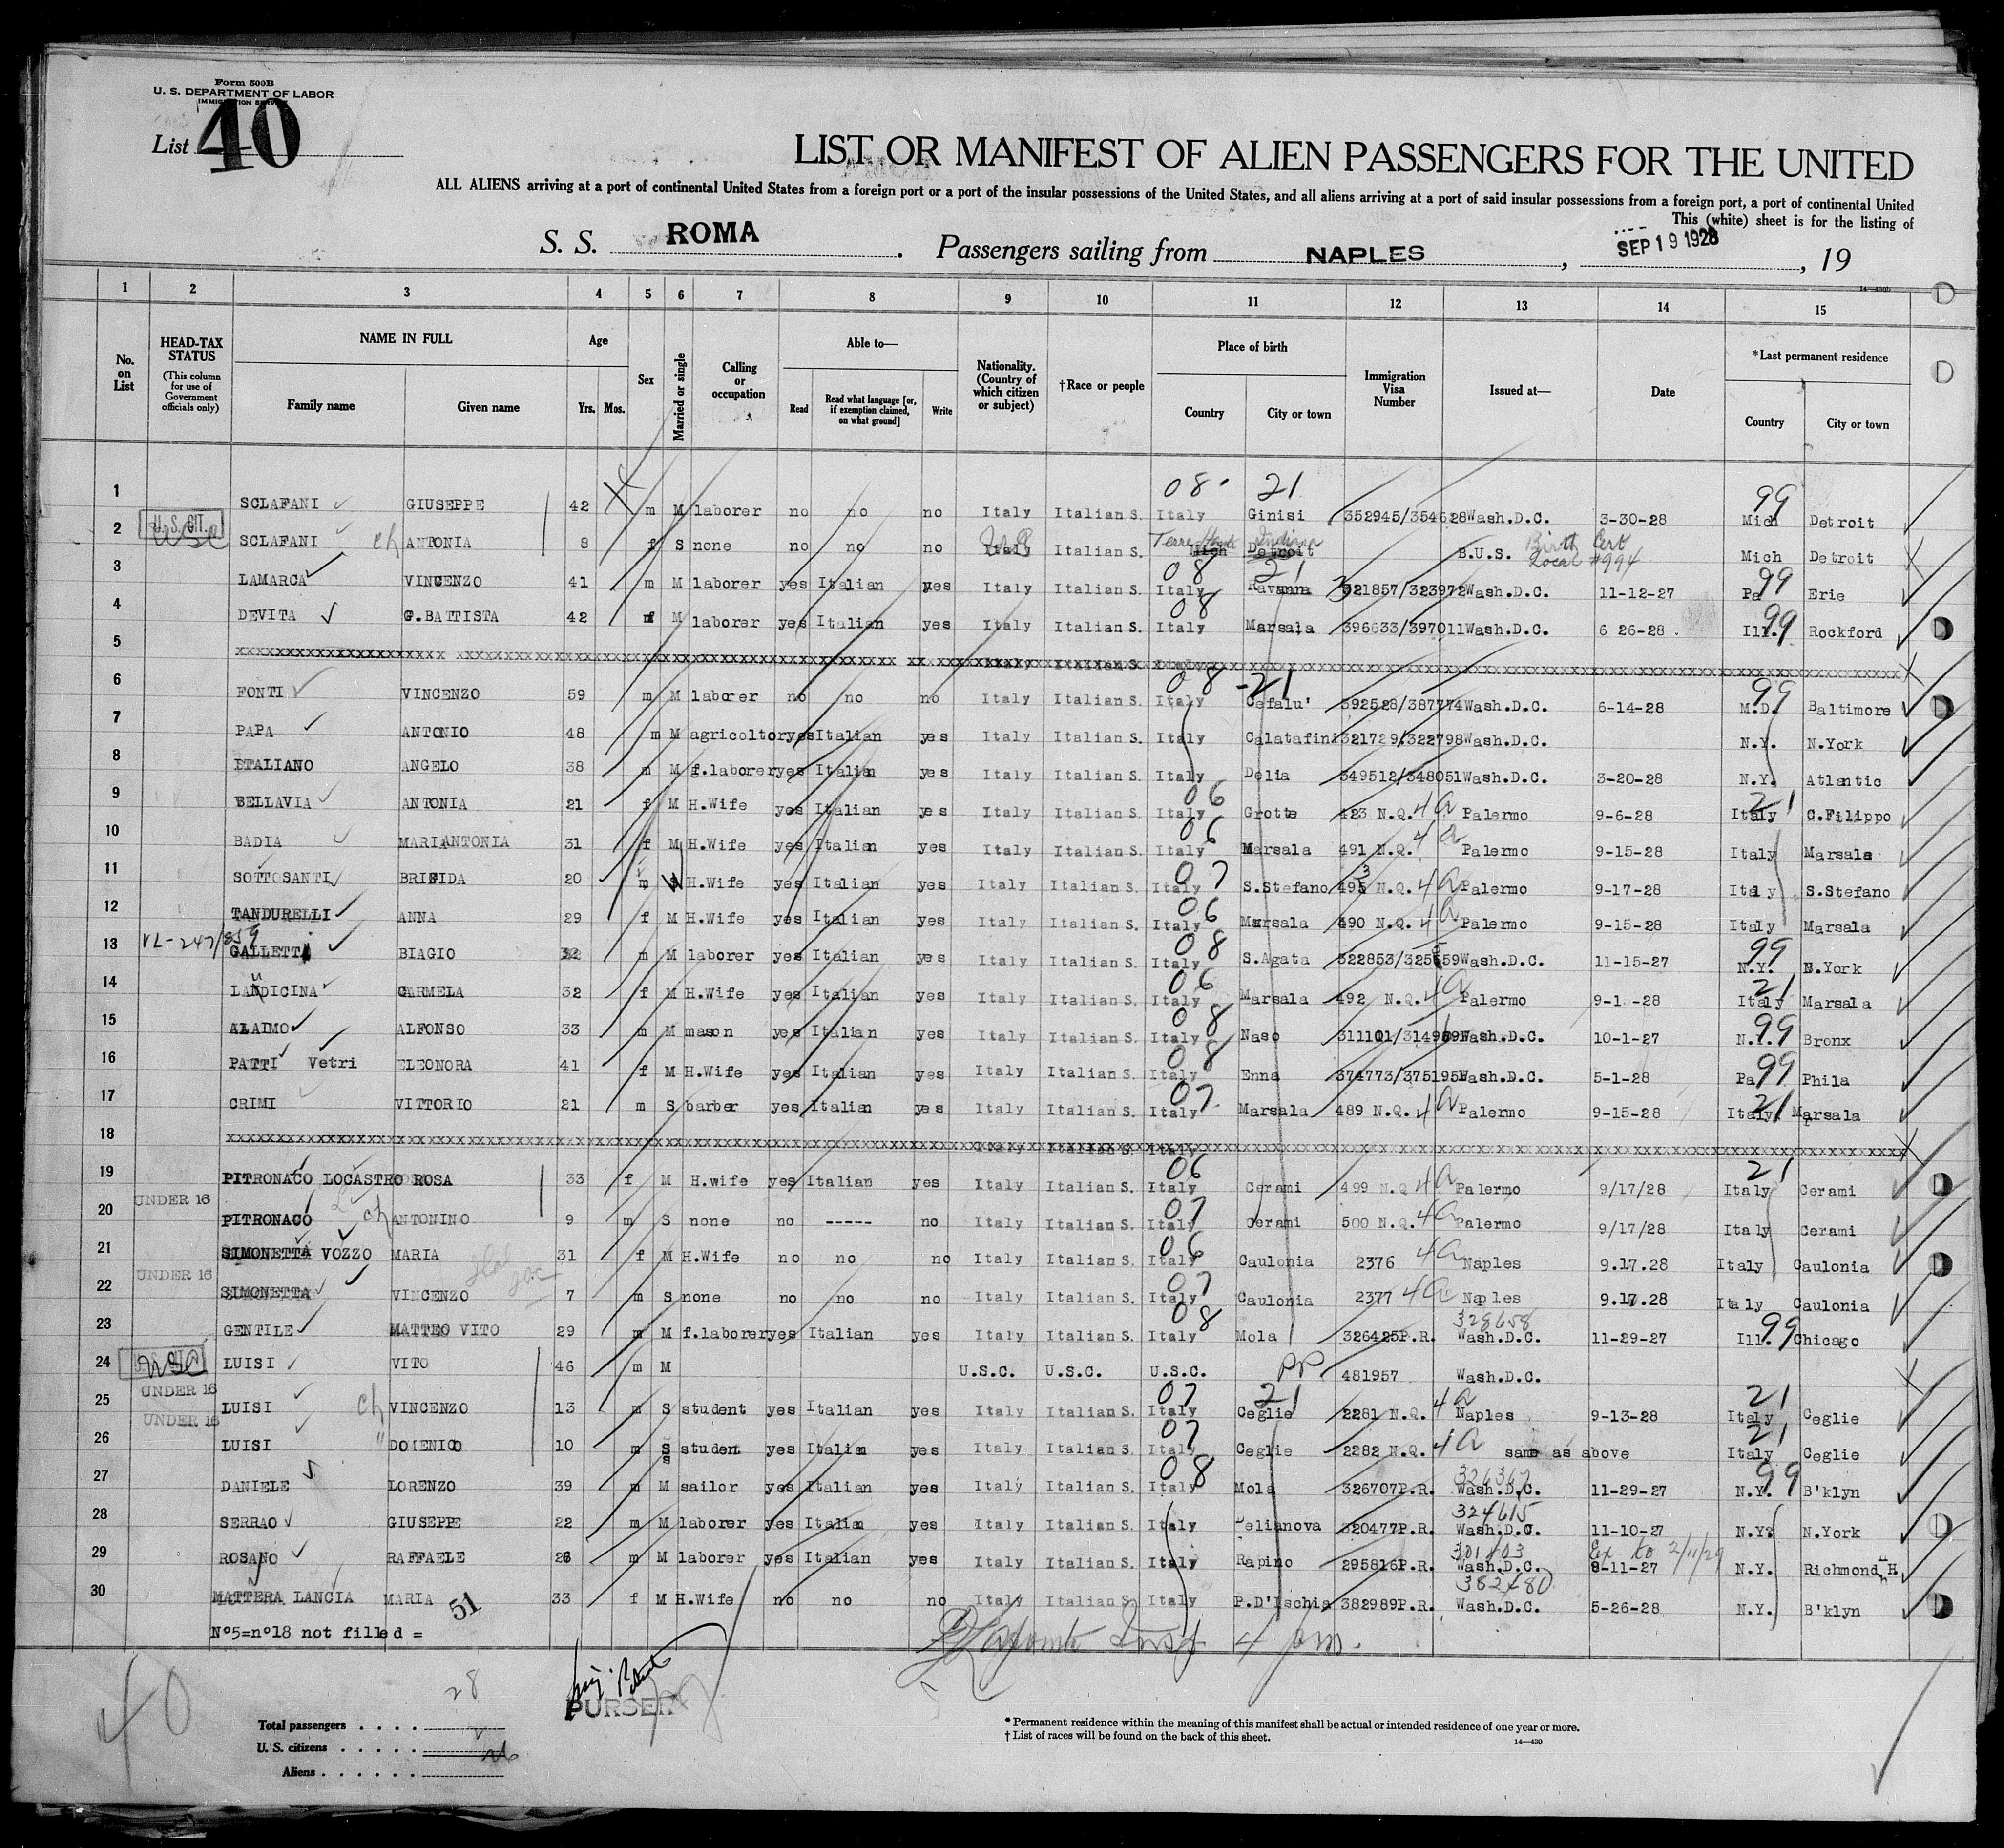 Form 500B
U. S. DEPARTMENT OF LABOR
IMMIGRATION SERVICE
List 40
LIST OR MANIFEST OF ALIEN PASSENGERS FOR THE UNITED
ALL ALIENS arriving at a port of continental United States from a foreign port or a port of the insular possessions of the United States, and all aliens arriving at a port of said insular possessions from a foreign port, a port of continental United
This (white) sheet is for the listing of
S. S. ROMA. Passengers sailing from NAPLES, SEP 19 1928, 19
14—430b
1 2 3 4 5 6 7 8 9 10 11 12 13 14 15
No. on List
HEAD-TAX STATUS (This column for use of Government officials only)
NAME IN FULL
Family name Given name
Age
Yrs. Mos.
Sex
Married or single
Calling or occupation
Able to—
Read Read what language [or, if exemption claimed, on what ground] Write
Nationality. (Country of which citizen or subject)
†Race or people
Place of birth
Country City or town
Immigration Visa Number
Issued at—
Date
*Last permanent residence
Country City or town
08 21 99
1 SCLAFANI GIUSEPPE 42 m M laborer no no no Italy Italian S. Italy Ginisi 352945/354628 Wash.D.C. 3-30-28 Mich Detroit
U.S. CIT. USC Terre Haute Indiana Birth Cert
2 SCLAFANI ch ANTONIA 8 f S none no no no Italy Italian S. Mich Detroit B.U.S. Local #994 Mich Detroit
08 21 99
3 LAMARCA VINCENZO 41 m M laborer yes Italian yes Italy Italian S. Italy Ravanna 321857/323972 Wash.D.C. 11-12-27 Pa Erie
08 99
4 DEVITA G.BATTISTA 42 m M laborer yes Italian yes Italy Italian S. Italy Marsala 396633/397011 Wash.D.C. 6 26-28 Ill. Rockford
5 Italy Italian S. Italy
08 -21 99
6 FONTI VINCENZO 59 m M laborer no no no Italy Italian S. Italy Cefalu' 392528/387774 Wash.D.C. 6-14-28 M.D. Baltimore
7 PAPA ANTONIO 48 m M agricoltor yes Italian yes Italy Italian S. Italy Calatafini 321729/322798 Wash.D.C. N.Y. N.York
8 ITALIANO ANGELO 38 m M f.laborer yes Italian yes Italy Italian S. Italy Delia 349512/348051 Wash.D.C. 3-20-28 N.Y. Atlantic
06 21
9 BELLAVIA ANTONIA 21 f M H.Wife yes Italian yes Italy Italian S. Italy Grotte 423 N.Q. 4a Palermo 9-6-28 Italy C.Filippo
06
10 BADIA MARIANTONIA 31 f M H.Wife yes Italian yes Italy Italian S. Italy Marsala 491 N.Q. 4a Palermo 9-15-28 Italy Marsala
07
11 SOTTOSANTI BRIFIDA 20 m M H.Wife yes Italian yes Italy Italian S. Italy S.Stefano 493 N.Q. 4a Palermo 9-17-28 Italy S.Stefano
06
12 TANDURELLI ANNA 29 f M H.Wife yes Italian yes Italy Italian S. Italy Marsala 490 N.Q. 4a Palermo 9-15-28 Italy Marsala
VL-247/859 08 99
13 GALLETTI BIAGIO 32 m M laborer yes Italian yes Italy Italian S. Italy S.Agata Wash.D.C. 11-15-27 N.Y. N.York
06 21
14 LAUDICINA CARMELA 32 f M H.Wife yes Italian yes Italy Italian S. Italy Marsala 492 N.Q. 4a Palermo 9-1 -28 Italy Marsala
08 99
15 ALAIMO ALFONSO 33 m M mason yes Italian yes Italy Italian S. Italy Naso Wash.D.C. 10-1-27 N.Y. Bronx
08 99
16 PATTI Vetri ELEONORA 41 f M H.Wife yes Italian yes Italy Italian S. Italy Enna 374773/375195 Wash.D.C. 5-1-28 Pa Phila
07 21
17 CRIMI VITTORIO 21 m S barber yes Italian yes Italy Italian S. Italy Marsala 489 N.Q. 4a Palermo 9-15-28 Italy Marsala
18 Italy Italian S. Italy
06 21
19 PITRONACO LOCASTRO ROSA 33 f M H.wife yes Italian yes Italy Italian S. Italy Cerami 499 N.Q 4a Palermo 9/17/28 Italy Cerami
UNDER 16 07
20 PITRONACO ch ANTONINO 9 m S none no ----- no Italy Italian S. Italy Cerami 500 N.Q. 4a Palermo 9/17/28 Italy Cerami
06
21 SIMONETTA VOZZO MARIA 31 f M H.Wife no no no Italy Italian S. Italy Caulonia 2376 4a Naples 9.17.28 Italy Caulonia
UNDER 16 07
22 SIMONETTA VINCENZO 7 m S none no no no Italy Italian S. Italy Caulonia 2377 4a Naples 9.17.28 Italy Caulonia
08 328658 99
23 GENTILE MATTEO VITO 29 m M f.laborer yes Italian yes Italy Italian S. Italy Mola 326425P.R. Wash.D.C. 11-29-27 Ill. Chicago
24 USC LUISI VITO 46 m M U.S.C. U.S.C. U.S.C. PP 481957 Wash.D.C.
UNDER 16 07 21 21
25 LUISI ch VINCENZO 13 m S student yes Italian yes Italy Italian S. Italy Ceglie 2281 N.Q. 4a Naples 9-13-28 Italy Ceglie
UNDER 16 07 21
26 LUISI " DOMENICO 10 m S student yes Italian yes Italy Italian S. Italy Ceglie 2282 N.Q. 4a same as above Italy Ceglie
08 326362 99
27 DANIELE LORENZO 39 m M sailor yes Italian yes Italy Italian S. Italy Mola 326707P.R. Wash.D.C. 11-29-27 N.Y. B'klyn
324615
28 SERRAO GIUSEPPE 22 m M laborer yes Italian yes Italy Italian S. Italy Delianova 320477P.R. Wash.D.C. 11-10-27 N.Y. N.York
Ex to 2/11/29
29 ROSANO RAFFAELE 26 m M laborer yes Italian yes Italy Italian S. Italy Rapino 295816P.R. Wash.D.C. 8-11-27 N.Y. Richmond H.
382480
30 MATTERA LANCIA MARIA 33 f M H.Wife no no no Italy Italian S. Italy P.D'Ischia 382989P.R. Wash.D.C. 5-26-28 N.Y. B'klyn
51
Nº5=nº18 not filled =
40
PURSER
Total passengers . . . . 28
U. S. citizens . . . . . 2
Aliens . . . . . . 26
* Permanent residence within the meaning of this manifest shall be actual or intended residence of one year or more.
† List of races will be found on the back of this sheet.
14—430